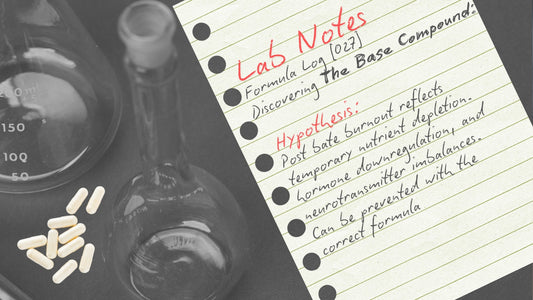 Lab Notes
Formula Log [027]
Discovering the Base Compound:
Hypothesis:
Post bate burnout reflects
temporary nutrient depletion.
hormone downregulation, and
neurotransmitter imbalances.
Can be prevented with the
correct formula
150
100
50